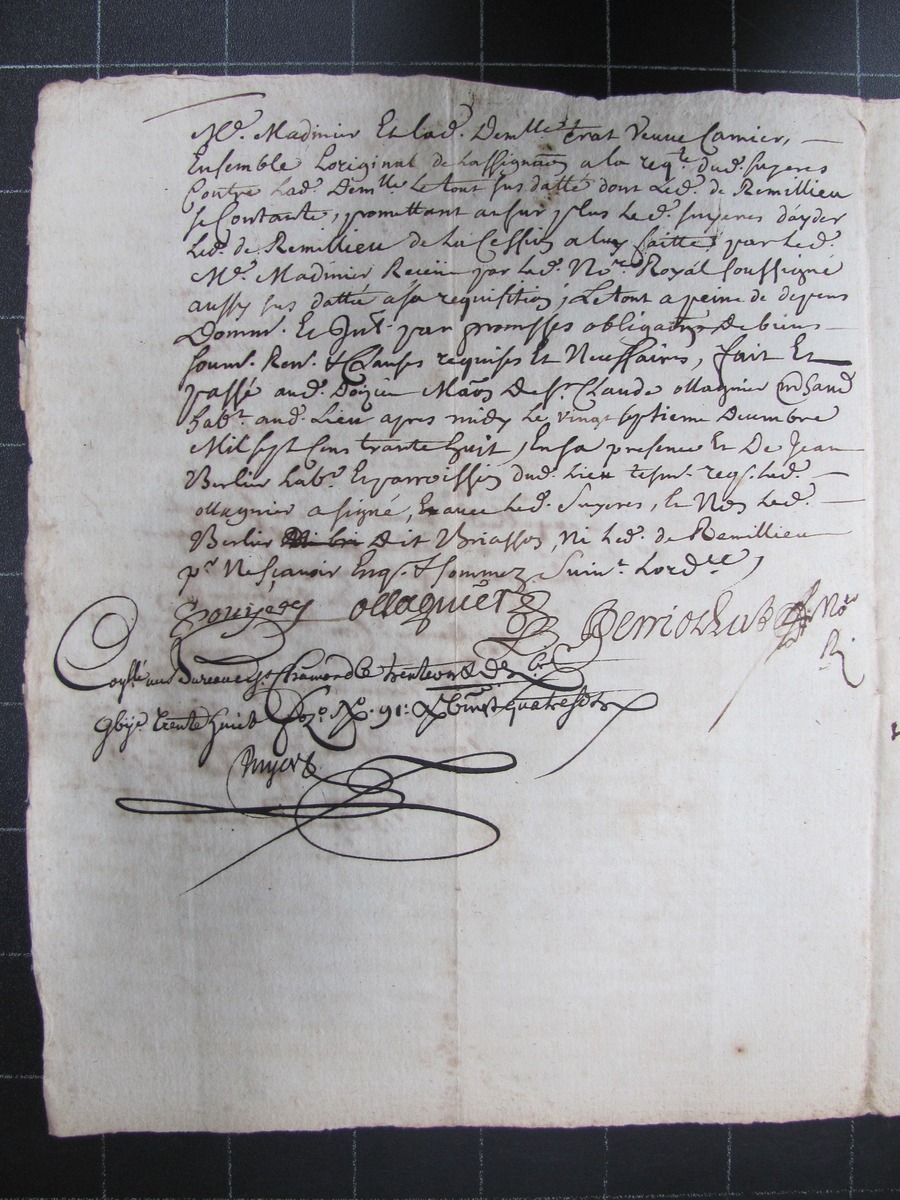 Md. Madinier Et lad. Demlle Crat Veuve Carnier,
Ensemble Loriginal de Lassignaon a la reqte dud. Suyeres
Contre lad. Demlle Le tout sus datté dont Led. de Remillieu
se Contante, promettant au surplus Led. Suyeres d'ayder
Led. de Remillieu de La Cession a luy faitte par led.
Md. Madinier Receüe par led. Nore Royal soussigné
aussy sus dattée a sa requisition; Le tout a peine de depens
Domm. Et Int. par promesses obligaons de biens
soum. Ren. & Clauses requises Et Necessaires, fait Et
passé aud. Maon De Sr. Claude ollagnier mchand
habt. aud. Lieu apres midy le vingt septieme Decembre
Mil sept Cens trante huit, En sa presence Et De Jean
Berlier habt. Et parroissien dud. Lieu tesm. reqs. Led.
ollagnier a signé, Et avec Led. Suyeres, & Non Led.
Berlier dit Briasson, Ni Led. de Remillieu
pr. Ne sçavoir Enqs. & sommez Suivt. Lordce
ollagnier
Nore
R.
au Bureau de St. Chamond le trente un Xbre
trente huit fo. 91. Rx vingt quatre sols